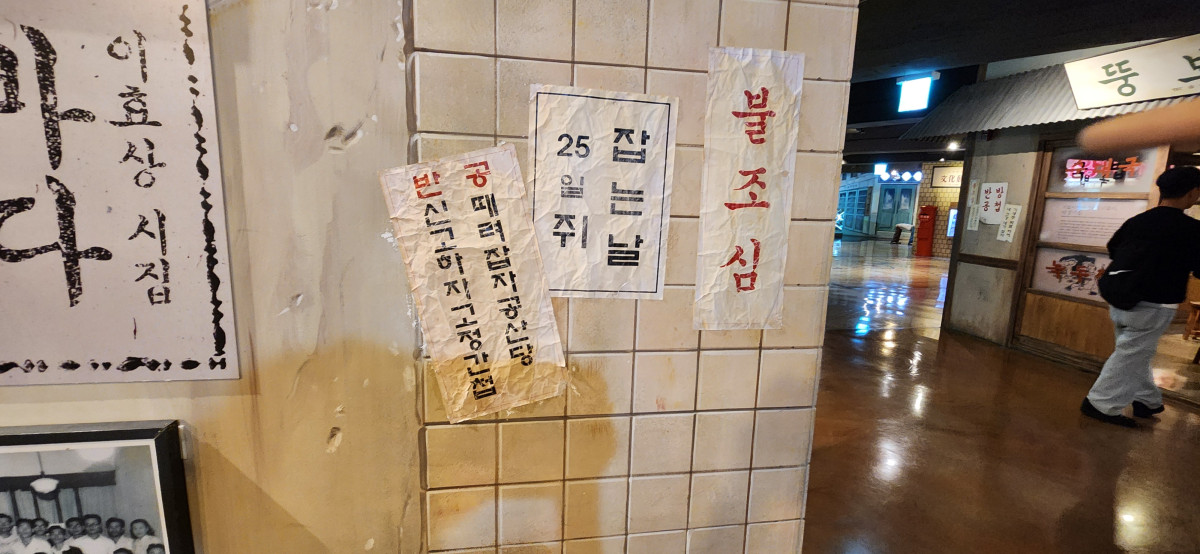 다
이효상 시집
반공
때려잡자공산당
신고하자고정간첩
25일쥐
잡는날
불조심
뚱
반공
방첩
文化